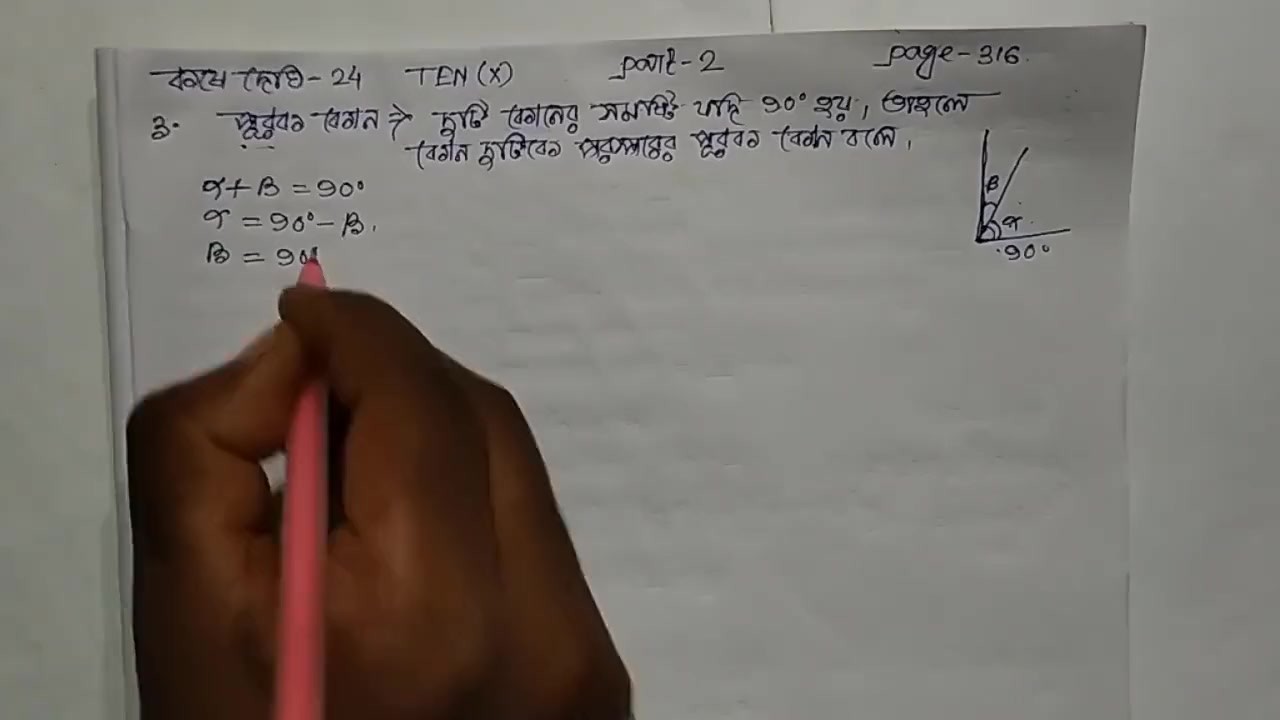 কষে দেখি - 24 TEN (X) part - 2 page - 316.
3. পূরক কোণ ⇒ দুটি কোণের সমষ্টি যদি 90° হয়, তাহলে
কোণ দুটিকে পরস্পরের পূরক কোণ বলে।
α + β = 90°
α = 90° - β.
β = 90°
β
α
90°